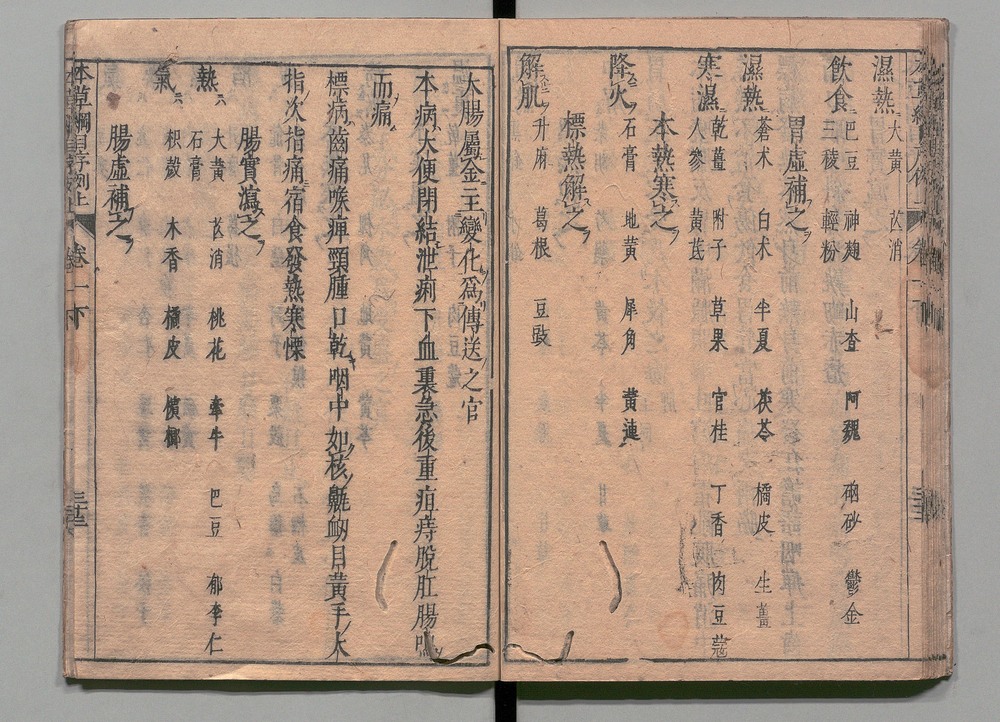 濕熱 大黄 芒消
飲食 巴豆 神麹 山査 阿魏 硇砂 鬱金
三稜 輕粉
胃虛補之
濕熱 蒼朮 白朮 半夏 茯苓 橘皮 生薑
寒濕 乾薑 附子 草果 官桂 丁香 肉豆蔻
人參 黄芪
本熱寒之
降火 石膏 地黄 犀角 黄連
標熱解之
解肌 升麻 葛根 豆豉
大腸屬金主變化爲傳送之官
本病大便閉結泄痢下血裏急後重疽痔脫肛腸鳴
而痛
標病齒痛喉痺頸腫口乾咽中如核鼽衂目黄手大
指次指痛宿食發熱寒慄
腸實瀉之
熱 大黄 芒消 桃花 牽牛 巴豆 郁李仁
石膏
氣 枳殼 木香 橘皮 檳榔
腸虛補之
本草綱目序例上 卷一下 三十二